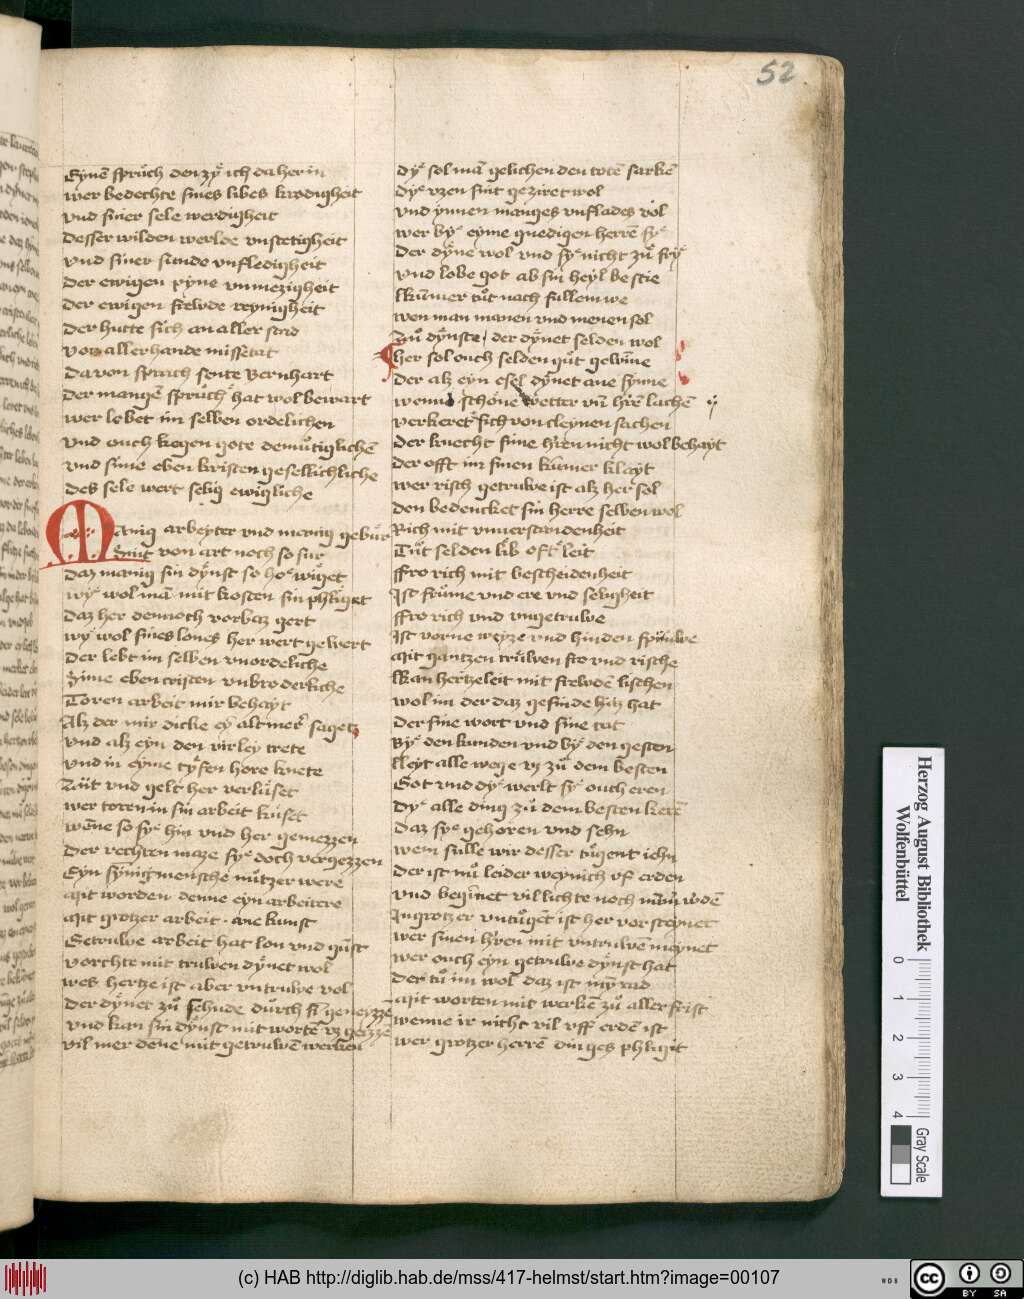 52
Eynē sprůch den zyͤ ich da her in
wer bedechte sines libes krodigheit
vnd siner sele werdigheit
desser wilden werlde vnstetigheit
vnd siner sunde vnfledigheit
der ewigen pyne vnmezigheit
der ewigen frewde reynigheit
der hutte sich an aller stad
vor allerhande missetat
da von sprach sente Bernhart
der mangē sprůch hat wol bewart
wer lebet im selben ordelichen
vnd ouch kegen gote demůtiglichē
vnd sime eben kristen gesellichliche
des sele wert selig ewigliche
Manig arbeyter vnd manig gebůr
Sint von art noch so sur
daz manig sin dyͤnst so hoͤ wiget
wyͤ wol mā mit kosten sin phliget
daz her dennoch vorbaz gert
wyͤ wol sines lones her wert gewert
der lebt im selben vnordeliche
Sime eben cristen vnbroderliche
Toren arbeit mir behayt
Alz der mir dicke ey alt mer sagete
vnd alz eyn den virley trete
vnd in eyme tyfen hore knete
Zůt vnd gelt her verlůset
wer toren in sin arbeit kuset
wēne so syͤ hin vnd her gemezzen
der rechten maze syͤ doch vergezzen
Eyn synnig mensche nůtzer were
Mit worden denne eyn arbeitere
Mit grotzer arbeit ane kunst
Getruwe arbeit hat lon vnd gůst
vorchte mit truwen dyͤnet wol
wes hertze ist aber vntruwe vol
der dyͤnet zů schude důrch
vnd kan sin dyͤnst mit wortē
vil mer dēne mit getruwē werken
dyͤ sol mā gelichen den totē sarkē
dyͤ vzen sint geziret wol
vnd ynnen manges vnflades vol
wer byͤ eyme gnedigen herrē syͤ
der dyne wol vnd syͤ nicht zů fryͤ
vnd lobe got ab sin heyl bestie
kummer tůt nach fullem we
wen man manen vnd menen sol
Zů dyͤnste der dyͤnet selden wol
her sol ouch selden gůt gewīne
der alz eyn esel dyͤnet ane synne
wenne schone wetter vn hrē lachē
verkeret sich von cleynen sachen
der knecht sime hren nicht wol behayt
der offt im sinen kūmer klayt
wer risch getruwe ist alz her sol
den bedencket sin herre selben wol
Rich mit vnuerstandenheit
Tůt selden lib oft leit
ffro rich mit bescheidenheit
Ist frůme vnd ere vnd seligheit
ffro rich vnd vngetruwe
Ist vorne weyze vnd hinden
Mit gantzen truwen fro vnd rische
kan hertzeleit mit frewdē lischen
wol im der daz gesinde hat
der sine wort vnd sine tat
Byͤ den kunden vnd byͤ den gesten
kleyt alle wege vz zů dem besten
Got vnd dyͤ werlt syͤ ouch eren
dyͤ alle ding zů dem besten kerē
daz syͤ gehoren vnd sehn
wem sulle wir desser tůgent iehn
der ist nů leider weynich vf erden
vnd begīnet vil lichte noch
In grotzer vntůgēt ist her vorsteynet
wer sinen hren mit vntruwē meynet
wer ouch eyn getruwe dyͤnst hat
der tů im wol daz ist myn rad
Mit worten mit werken zů aller frist
wenne ir nicht vil vff erdē ist
wer grotzer herrē dinges phligit
Herzog August Bibliothek
Wolfenbüttel
0 1 2 3 4
Gray Scale
(c) HAB http://diglib.hab.de/mss/417-helmst/start.htm?image=00107
WDB
cc BY SA